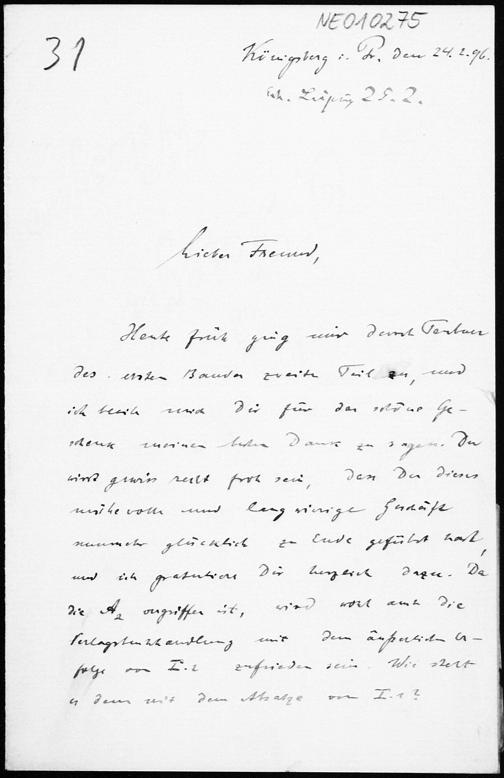 NE010275
31
Königsberg i. Pr. den 24.2.96.
Leipzig 25.2.
Lieber Freund,
Heute früh ging mir durch Teubner
des ersten Bandes zweiter Teil zu, und
ich beeile mich Dir für das schöne Ge-
schenk meinen besten Dank zu sagen. Du
wirst gewiss recht froh sein, dass Du dieses
mühevolle und langwierige Geschäft
nunmehr glücklich zu Ende geführt hast,
und ich gratuliere Dir herzlich dazu. Da
die A₂ vergriffen ist, wird wohl auch die
Verlagsbuchhandlung mit dem äußerlichen Er-
folge von I.2 zufrieden sein. Wie steht
es denn mit dem Absatze von I.1?